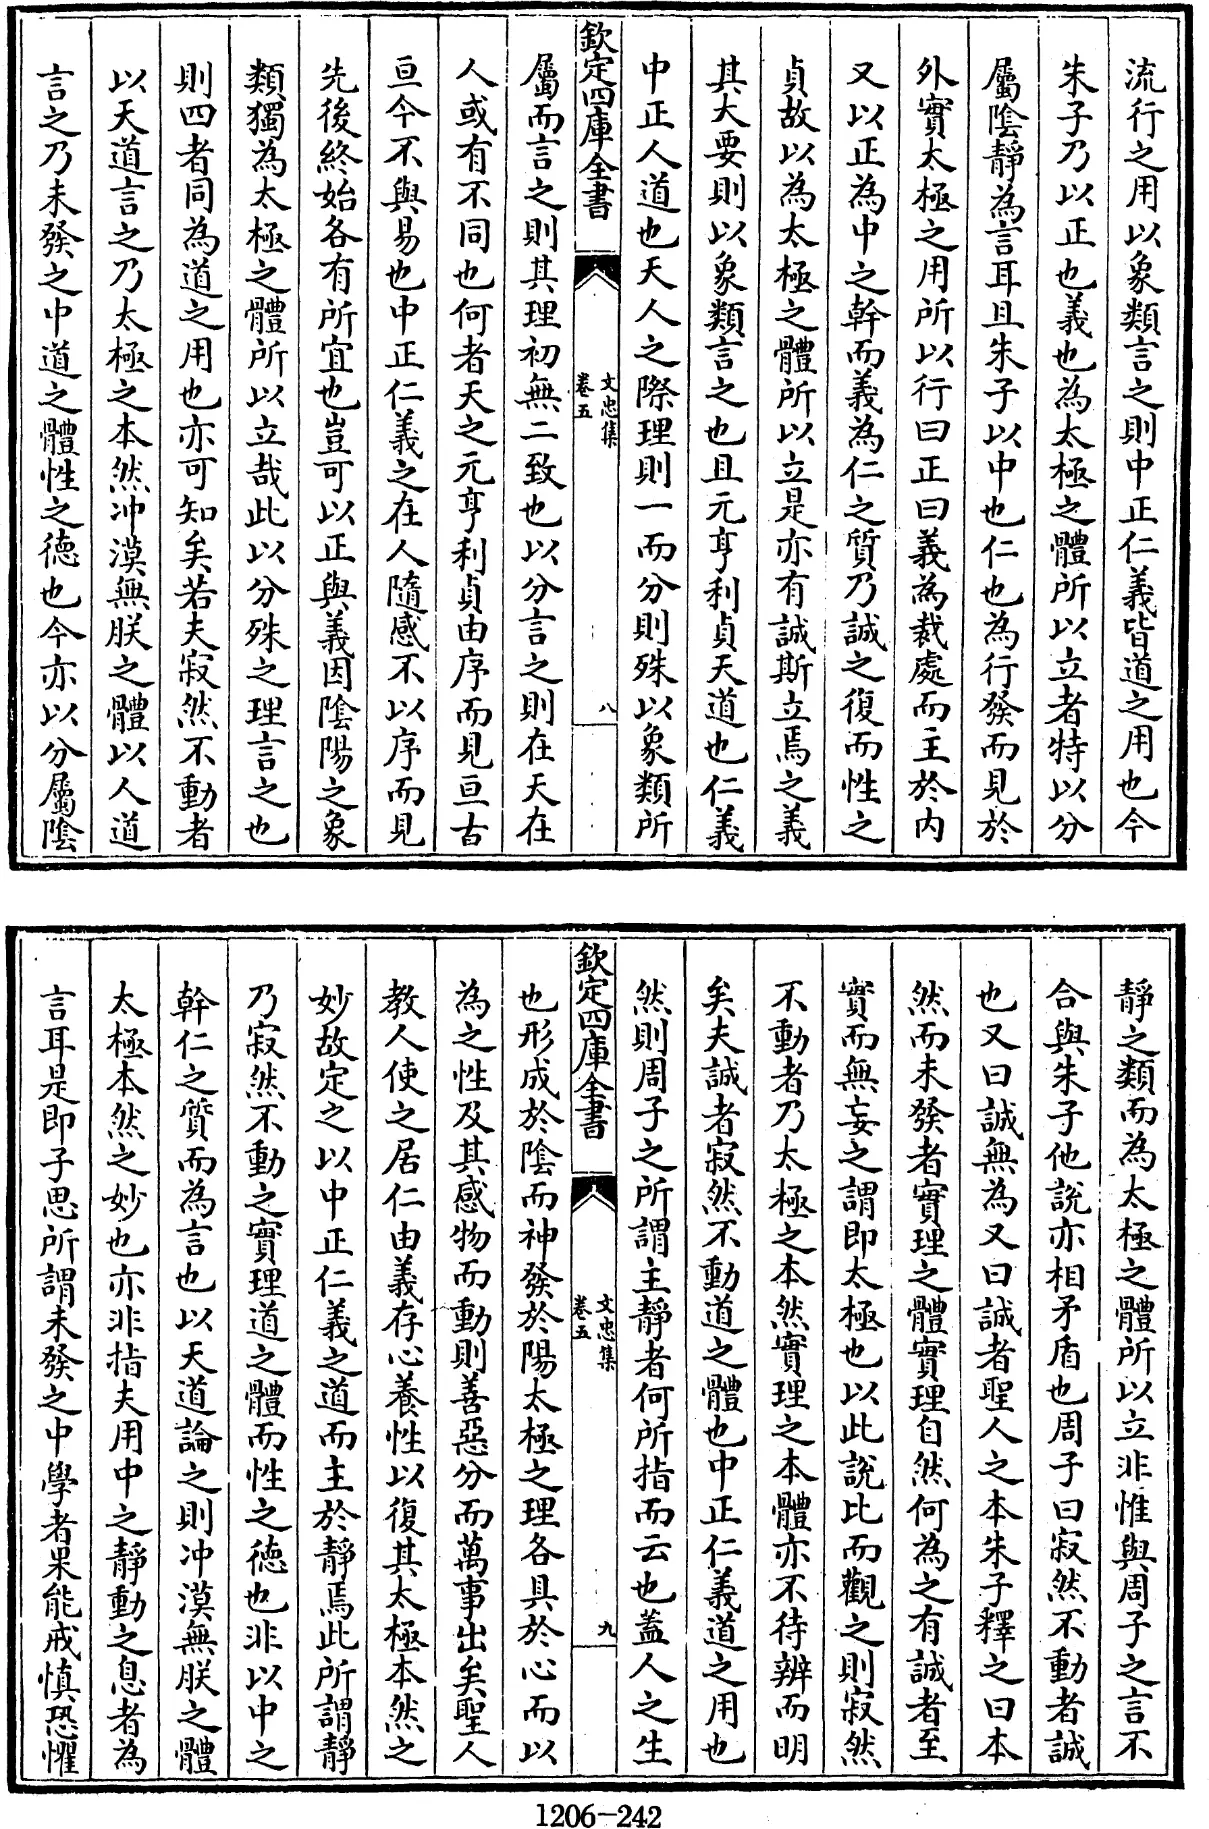 流行之用以象類言之則中正仁義皆道之用也今
朱子乃以正也義也為太極之體所以立者特以分
屬陰靜為言耳且朱子以中也仁也為行發而見於
外實太極之用所以行曰正曰義為裁處而主於内
又以正為中之幹而義為仁之質乃誠之復而性之
貞故以為太極之體所以立是亦有誠斯立焉之義
其大要則以象類言之也且元亨利貞天道也仁義
中正人道也天人之際理則一而分則殊以象類所
欽定四庫全書
文忠集
卷五
八
屬而言之則其理初無二致也以分言之則在天在
人或有不同也何者天之元亨利貞由序而見亘古
亘今不與易也中正仁義之在人隨感不以序而見
先後終始各有所宜也豈可以正與義因陰陽之象
類獨為太極之體所以立哉此以分殊之理言之也
則四者同為道之用也亦可知矣若夫寂然不動者
以天道言之乃太極之本然沖漠無朕之體以人道
言之乃未發之中道之體性之德也今亦以分屬陰
靜之類而為太極之體所以立非惟與周子之言不
合與朱子他說亦相矛盾也周子曰寂然不動者誠
也又曰誠無為又曰誠者聖人之本朱子釋之曰本
然而未發者實理之體實理自然何為之有誠者至
實而無妄之謂即太極也以此說比而觀之則寂然
不動者乃太極之本然實理之本體亦不待辨而明
矣夫誠者寂然不動道之體也中正仁義道之用也
然則周子之所謂主靜者何所指而云也蓋人之生
欽定四庫全書
文忠集
卷五
九
也形成於陰而神發於陽太極之理各具於心而以
為之性及其感物而動則善惡分而萬事出矣聖人
教人使之居仁由義存心養性以復其太極本然之
妙故定之以中正仁義之道而主於靜焉此所謂靜
乃寂然不動之實理道之體而性之德也非以中之
幹仁之質而為言也以天道論之則沖漠無朕之體
太極本然之妙也亦非指夫用中之靜動之息者為
言耳是即子思所謂未發之中學者果能戒慎恐懼
1206-242